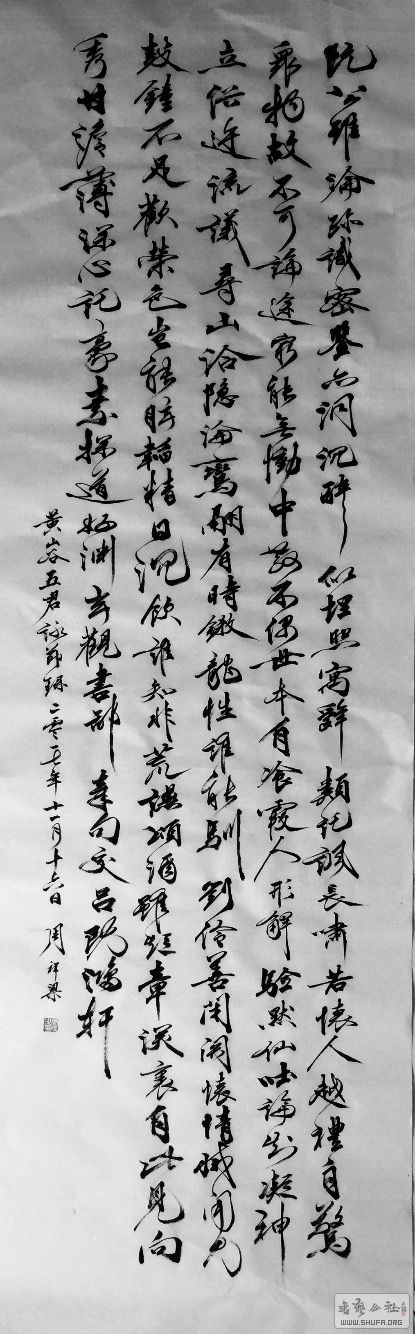 阮公雖淪跡識密鑒亦洞沉醉似埋照寓辭類託諷長嘯若懷人越禮自驚
眾物故不可論途窮能無慟中散不偶世本自飡霞人形解驗默仙吐論知凝神
立俗迕流議尋山洽隱淪鸞翮有時鎩龍性誰能馴劉伶善閉關懷情滅聞見
鼓鐘不足歡榮色豈能眩韜精日沉飲誰知非荒讌頌酒雖短章深衷自此見向
秀甘淡薄深心託豪素探道好淵玄觀書鄙章句交呂既鴻軒
黃山谷五君詠節錄二零一七年十一月十六日周祥梁
書藝公社
WWW.SHUFA.ORG